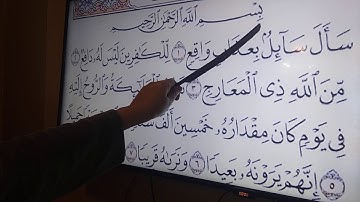 بِسْمِ ٱللَّهِ ٱلرَّحْمَٰنِ ٱلرَّحِيمِ
سَأَلَ سَآئِلٌۢ بِعَذَابٍ وَاقِعٍ ١ لِّلْكَٰفِرِينَ لَيْسَ لَهُۥ دَافِعٌ ٢
مِّنَ ٱللَّهِ ذِى ٱلْمَعَارِجِ ٣ ٱلْمَلَٰٓئِكَةُ وَٱلرُّوحُ إِلَيْهِ
فِى يَوْمٍ كَانَ مِقْدَارُهُۥ خَمْسِينَ أَلْفَ جَمِيلًا
٥ إِنَّهُمْ يَرَوْنَهُۥ بَعِيدًا ٦ وَنَرَىٰهُ قَرِيبًا ٧